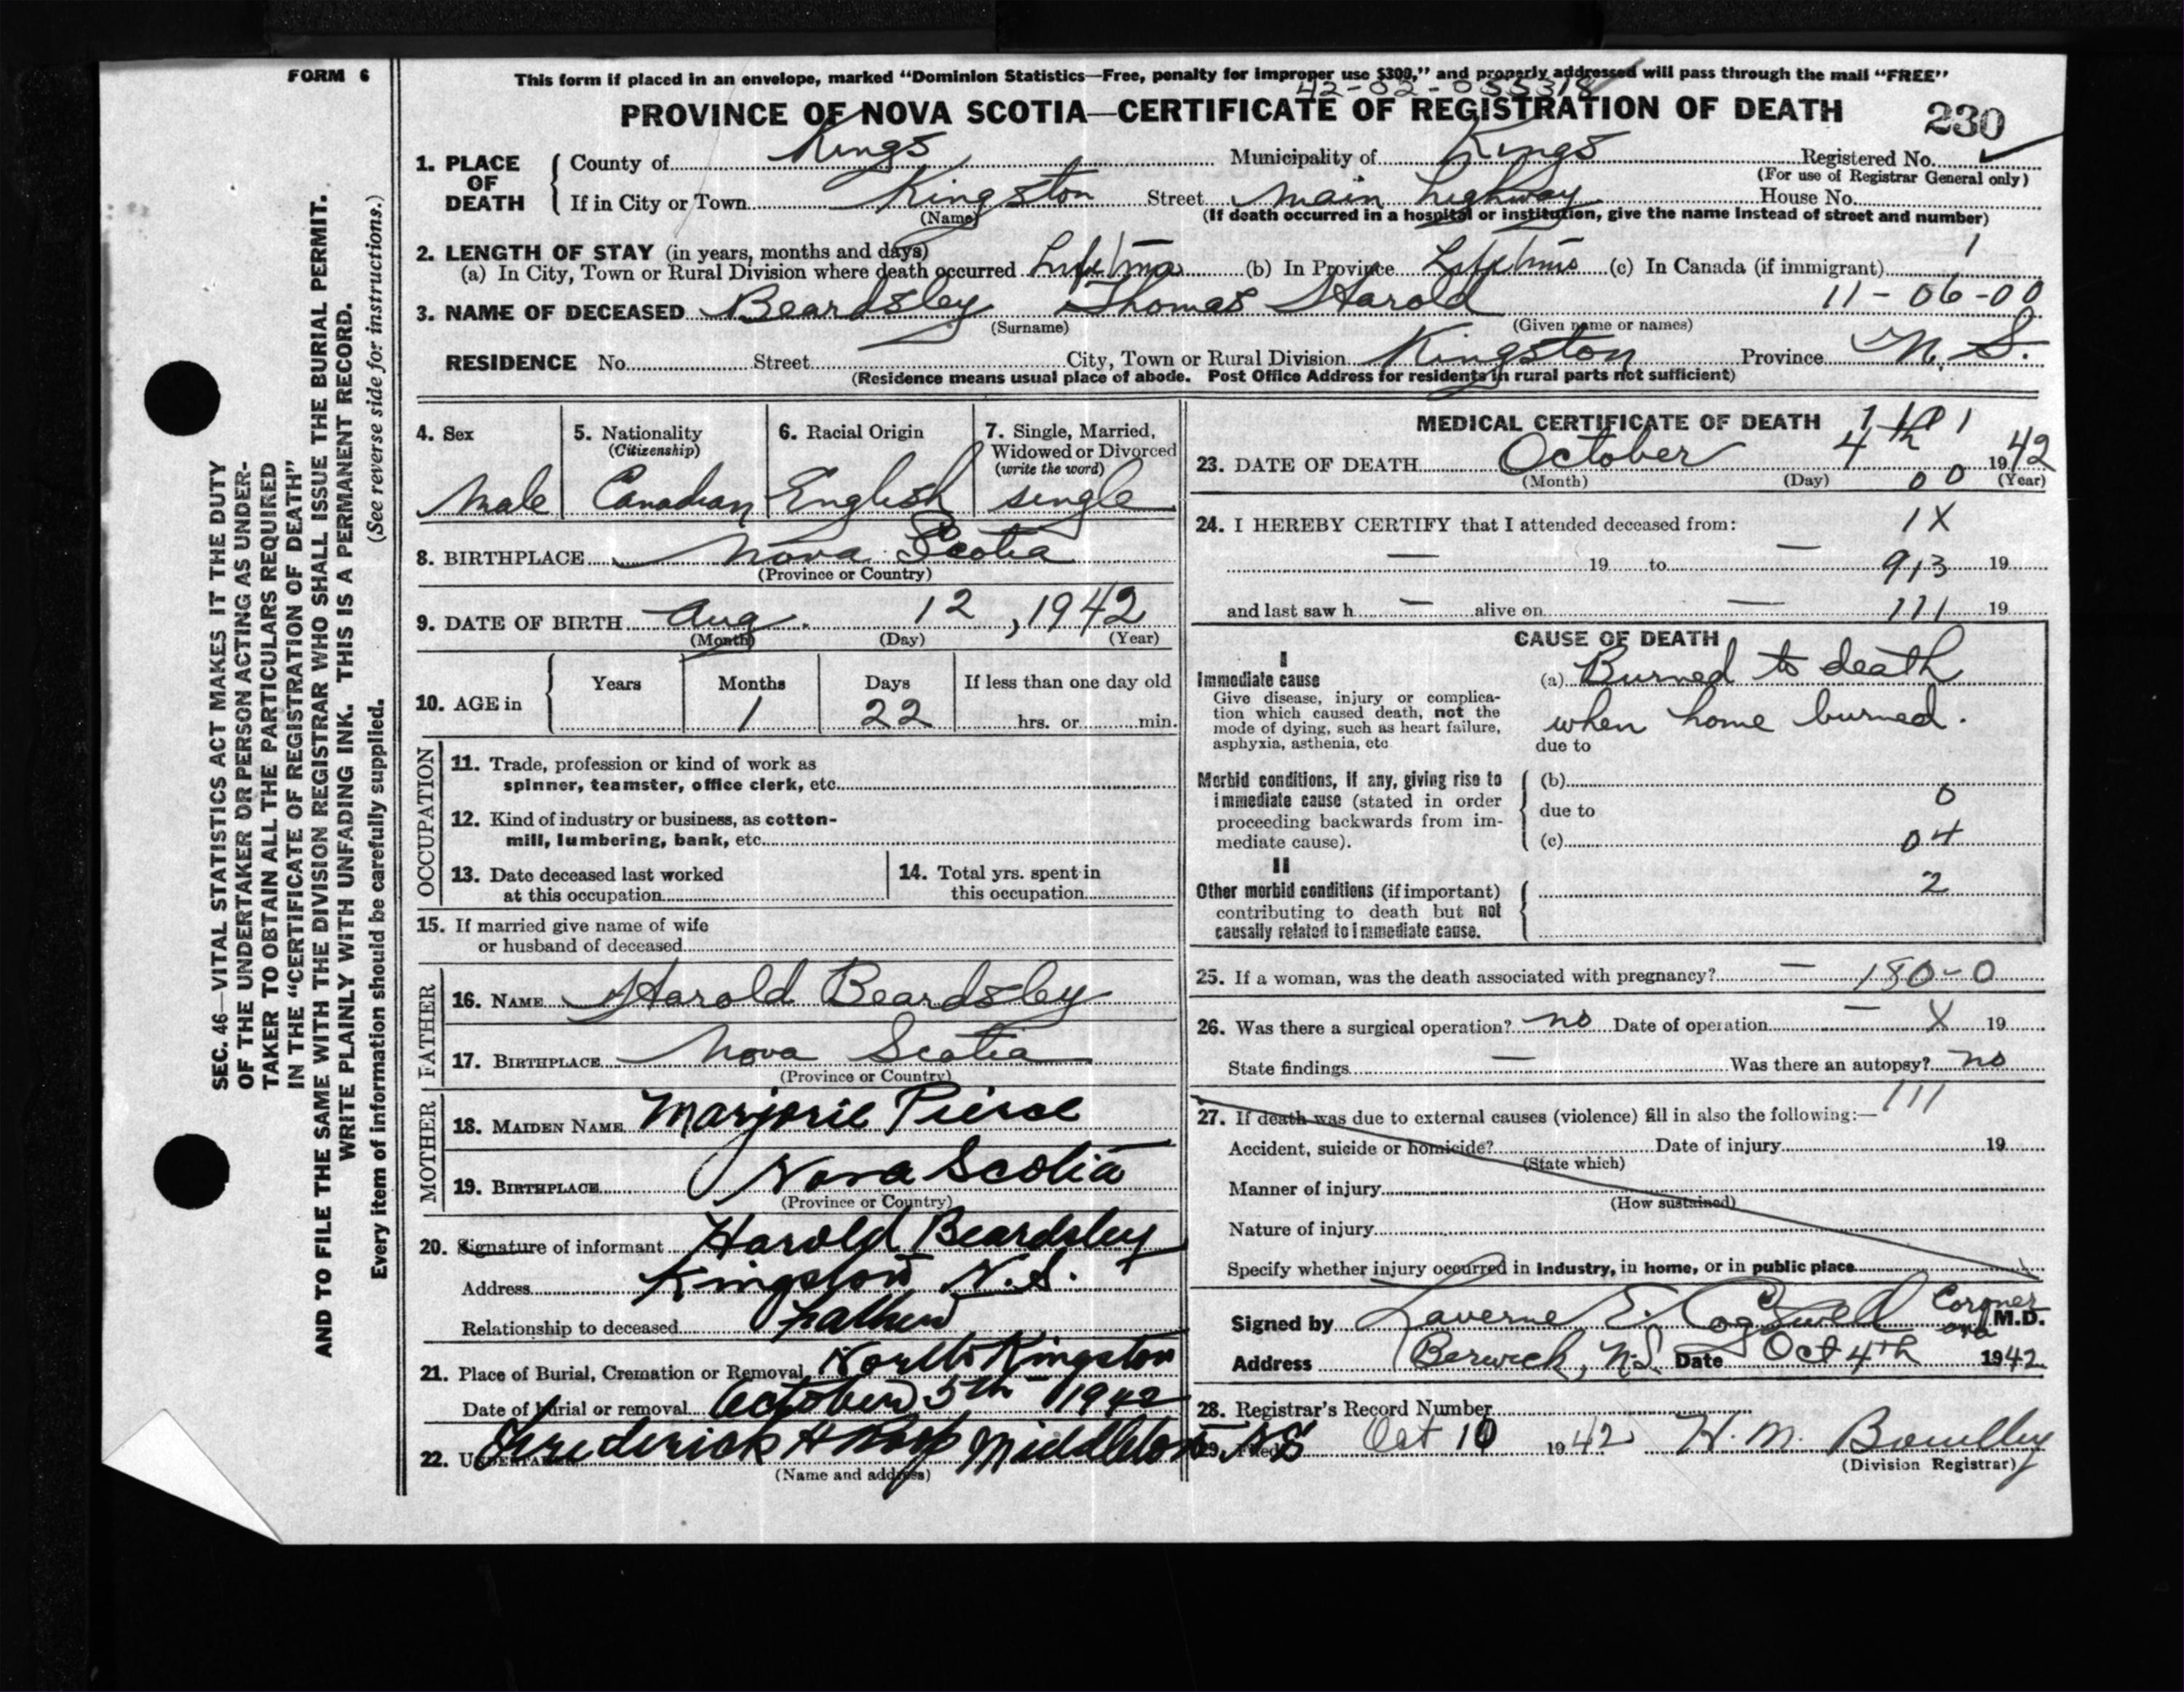 FORM 6
This form if placed in an envelope, marked "Dominion Statistics—Free, penalty for improper use $300," and properly addressed will pass through the mail "FREE"
42-02-055318
PROVINCE OF NOVA SCOTIA—CERTIFICATE OF REGISTRATION OF DEATH
230
1. PLACE OF DEATH
County of Kings Municipality of Kings Registered No.
(For use of Registrar General only)
If in City or Town Kingston Street Main highway House No.
(Name) (If death occurred in a hospital or institution, give the name instead of street and number)
2. LENGTH OF STAY (in years, months and days) 1
(a) In City, Town or Rural Division where death occurred Life 1 mo (b) In Province Life 1 mo (c) In Canada (if immigrant)
3. NAME OF DECEASED Beardsley Thomas Harold 11-06-00
(Surname) (Given name or names)
RESIDENCE No. Street City, Town or Rural Division Kingston Province N. S.
(Residence means usual place of abode. Post Office Address for residents in rural parts not sufficient)
4. Sex 5. Nationality (Citizenship) 6. Racial Origin 7. Single, Married, Widowed or Divorced (write the word)
Male Canadian English single
8. BIRTHPLACE Nova Scotia
(Province or Country)
9. DATE OF BIRTH Aug. 12, 1942
(Month) (Day) (Year)
10. AGE in Years Months Days If less than one day old
1 22 hrs. or min.
OCCUPATION
11. Trade, profession or kind of work as
spinner, teamster, office clerk, etc.
12. Kind of industry or business, as cotton-
mill, lumbering, bank, etc.
13. Date deceased last worked
at this occupation
14. Total yrs. spent in
this occupation
15. If married give name of wife
or husband of deceased
FATHER
16. NAME Harold Beardsley
17. BIRTHPLACE Nova Scotia
(Province or Country)
MOTHER
18. MAIDEN NAME Marjorie Pierce
19. BIRTHPLACE Nova Scotia
(Province or Country)
20. Signature of informant Harold Beardsley
Address Kingston N.S.
Relationship to deceased Father
21. Place of Burial, Cremation or Removal North Kingston
Date of burial or removal October 5th 1942
22. UNDERTAKER Frederick H Middleton NS
(Name and address)
MEDICAL CERTIFICATE OF DEATH
23. DATE OF DEATH October 4th 1942
(Month) (Day) (Year)
00
24. I HEREBY CERTIFY that I attended deceased from: 1X
— 19 to — 913 19
and last saw h — alive on — 111 19
CAUSE OF DEATH
I
Immediate cause
Give disease, injury or complica-
tion which caused death, not the
mode of dying, such as heart failure,
asphyxia, asthenia, etc
(a) Burned to death
when home burned.
due to
Morbid conditions, if any, giving rise to
immediate cause (stated in order
proceeding backwards from im-
mediate cause).
(b)
0
due to
(c) 04
II
Other morbid conditions (if important)
contributing to death but not
causally related to immediate cause.
2
25. If a woman, was the death associated with pregnancy? — 180-0
26. Was there a surgical operation? no Date of operation — X 19
State findings — Was there an autopsy? no
111
27. If death was due to external causes (violence) fill in also the following:—
Accident, suicide or homicide? Date of injury 19
(State which)
Manner of injury
(How sustained)
Nature of injury
Specify whether injury occurred in industry, in home, or in public place
Signed by Laverne E. Cogswell Coroner and M.D.
Address Berwick, N.S. Date Oct 4th 1942
28. Registrar's Record Number
29. Filed Oct 10 1942 H. M.
(Division Registrar)
SEC. 46—VITAL STATISTICS ACT MAKES IT THE DUTY
OF THE UNDERTAKER OR PERSON ACTING AS UNDER-
TAKER TO OBTAIN ALL THE PARTICULARS REQUIRED
IN THE "CERTIFICATE OF REGISTRATION OF DEATH"
AND TO FILE THE SAME WITH THE DIVISION REGISTRAR WHO SHALL ISSUE THE BURIAL PERMIT.
WRITE PLAINLY WITH UNFADING INK. THIS IS A PERMANENT RECORD.
Every item of information should be carefully supplied. (See reverse side for instructions.)